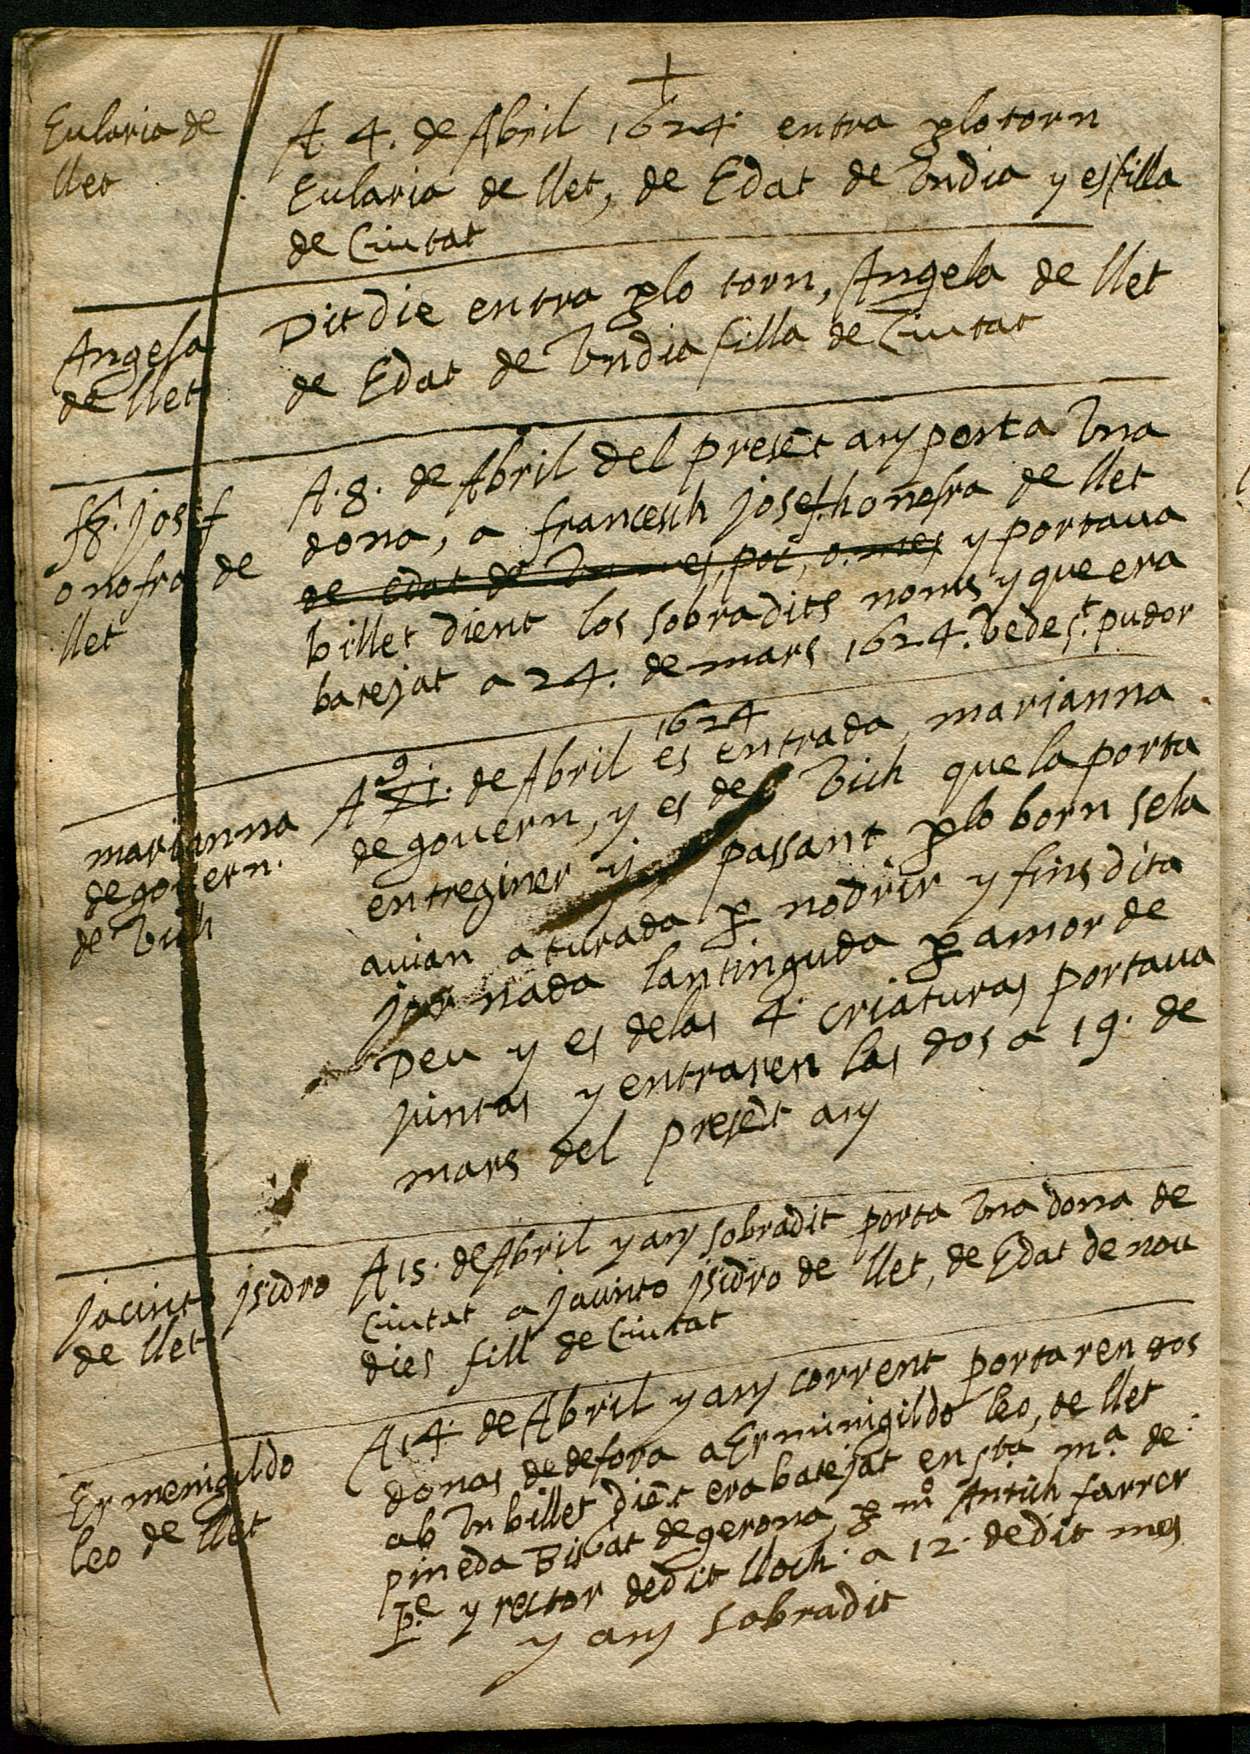 +
Eularia de
llet
A 4. de Abril 1624. entra plo torn
Eularia de llet, de Edat de Vndia y es filla
de Ciutat
Angela
de llet
Dit die entra plo torn, Angela de llet
de Edat de Vndia filla de Ciutat
josef
onofra de
llet
A. 8. de Abril del presēt any porta Vna
dona, a francesch joseph onofra de llet
de Edat de Vn mes, poc, o. mes y portaua
billet dient los sobradits noms y que era
batejat a 24. de mars 1624. Vede st. pudor
marianna
de gouern.
de Vich
1624
A 9 de Abril es entrada marianna
de gouern, y es de Vich que la porta
entreginer y passant plo born sela
auian aturada p nodrir y fins dita
jornada lantinguda p amor de
Deu y es delas 4. criaturas portaua
juntas y entraren las dos a 19. de
mars del presēt any
jacinto jsidro
de llet
A 15. de Abril y any sobradit porta Vna dona de
Ciutat a jacinto jsidro de llet, de Edat de nou
dies fill de Ciutat
Ermenigildo
leo de llet
A 14. de Abril y any corrent portaren dos
donas dedefora a Erminigildo leo, de llet
ab Vn billet diēt era batejat en sta. ma. de
pineda Bisbat de gerona, p mo. Antich farrer
Pe. y rector dedit lloch. a 12. dedit mes
y any sobradit